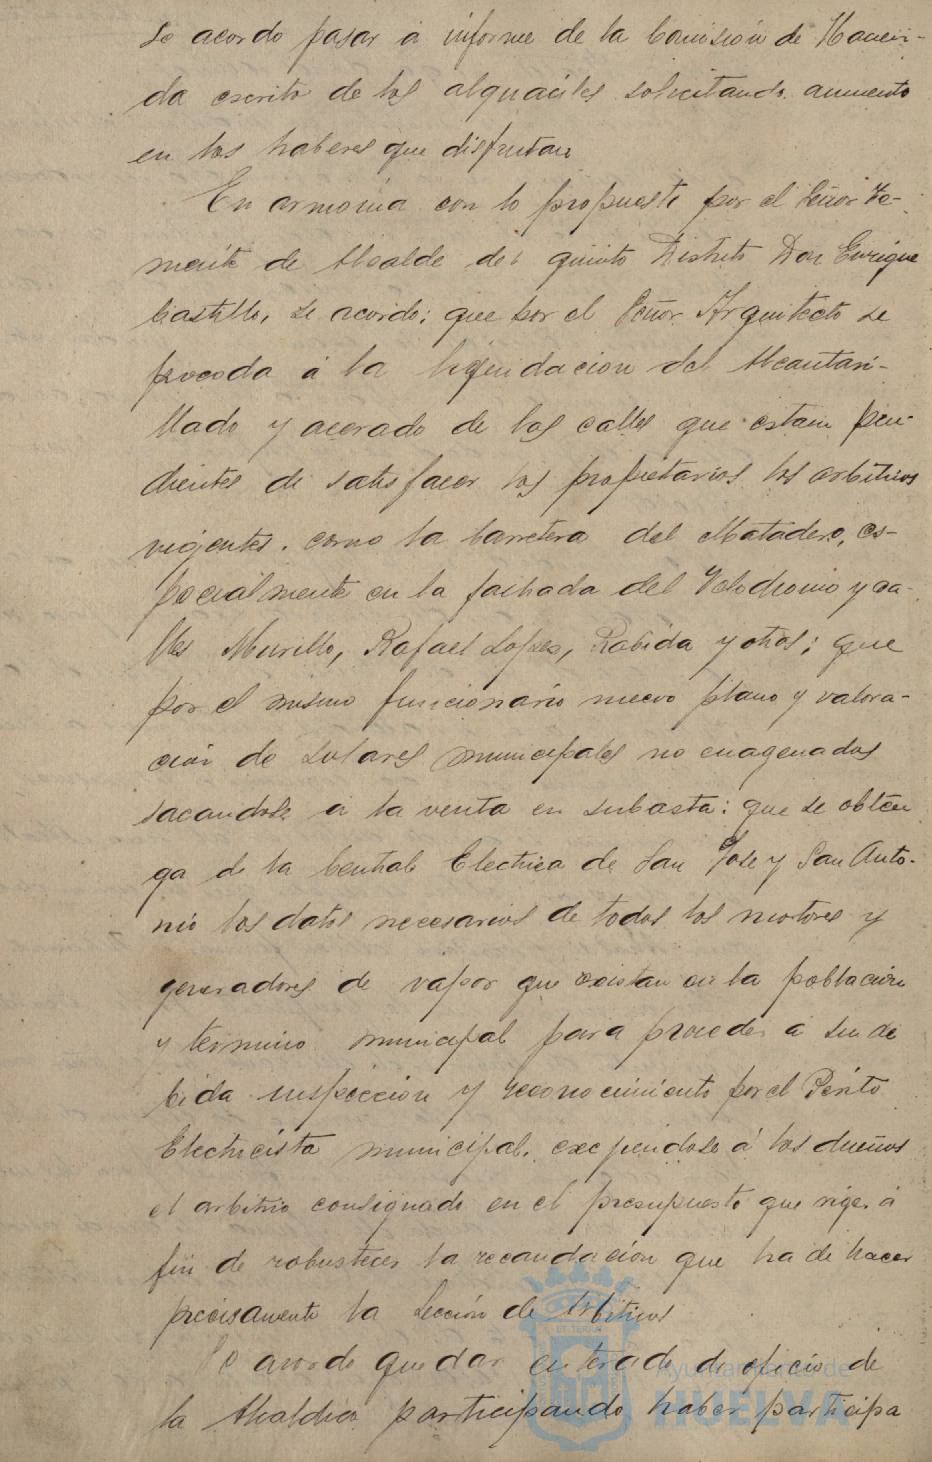 Se acordo pasar a informe de la Comisión de Hacien-
da escrito de los alguaciles solicitando aumento
en los haberes que disfrutan
En armonia con lo propuesto por el Señor Te-
niente de Alcalde del quinto Distrito Don Enrique
Castillo, se acordo; que por el Señor Arquitecto se
proceda á la liquidacion del Alcantari-
llado y acerado de las calles que estan pen-
dientes de satisfacer los propietarios los arbitrios
vigentes. como la Carretera del Matadero, es-
pecialmente en la fachada del Velodromo y ca-
lles Murillo, Rafael Lopez, Rabida y otras; que
por el mismo funcionario nuevo plano y valora-
ción de solares municipales no enagenados
sacandose a la venta en subasta: que se obten
ga de la Central Electrica de San José y San Anto-
nio los datos necesarios de todos los motores y
generadores de vapor que existan en la población
y termino municipal para proceder á su de
bida inspeccion y reconocimiento por el Perito
Electricista municipal. exigiendose á los dueños
el arbitrio consignado en el presupuesto que rige, á
fin de robustecer la recaudación que ha de hacer
precisamente la Sección de Arbitrios
Se acordo quedar enterado de oficio de
la Alcaldia participando haber participa
Ayuntamiento de
HUELVA